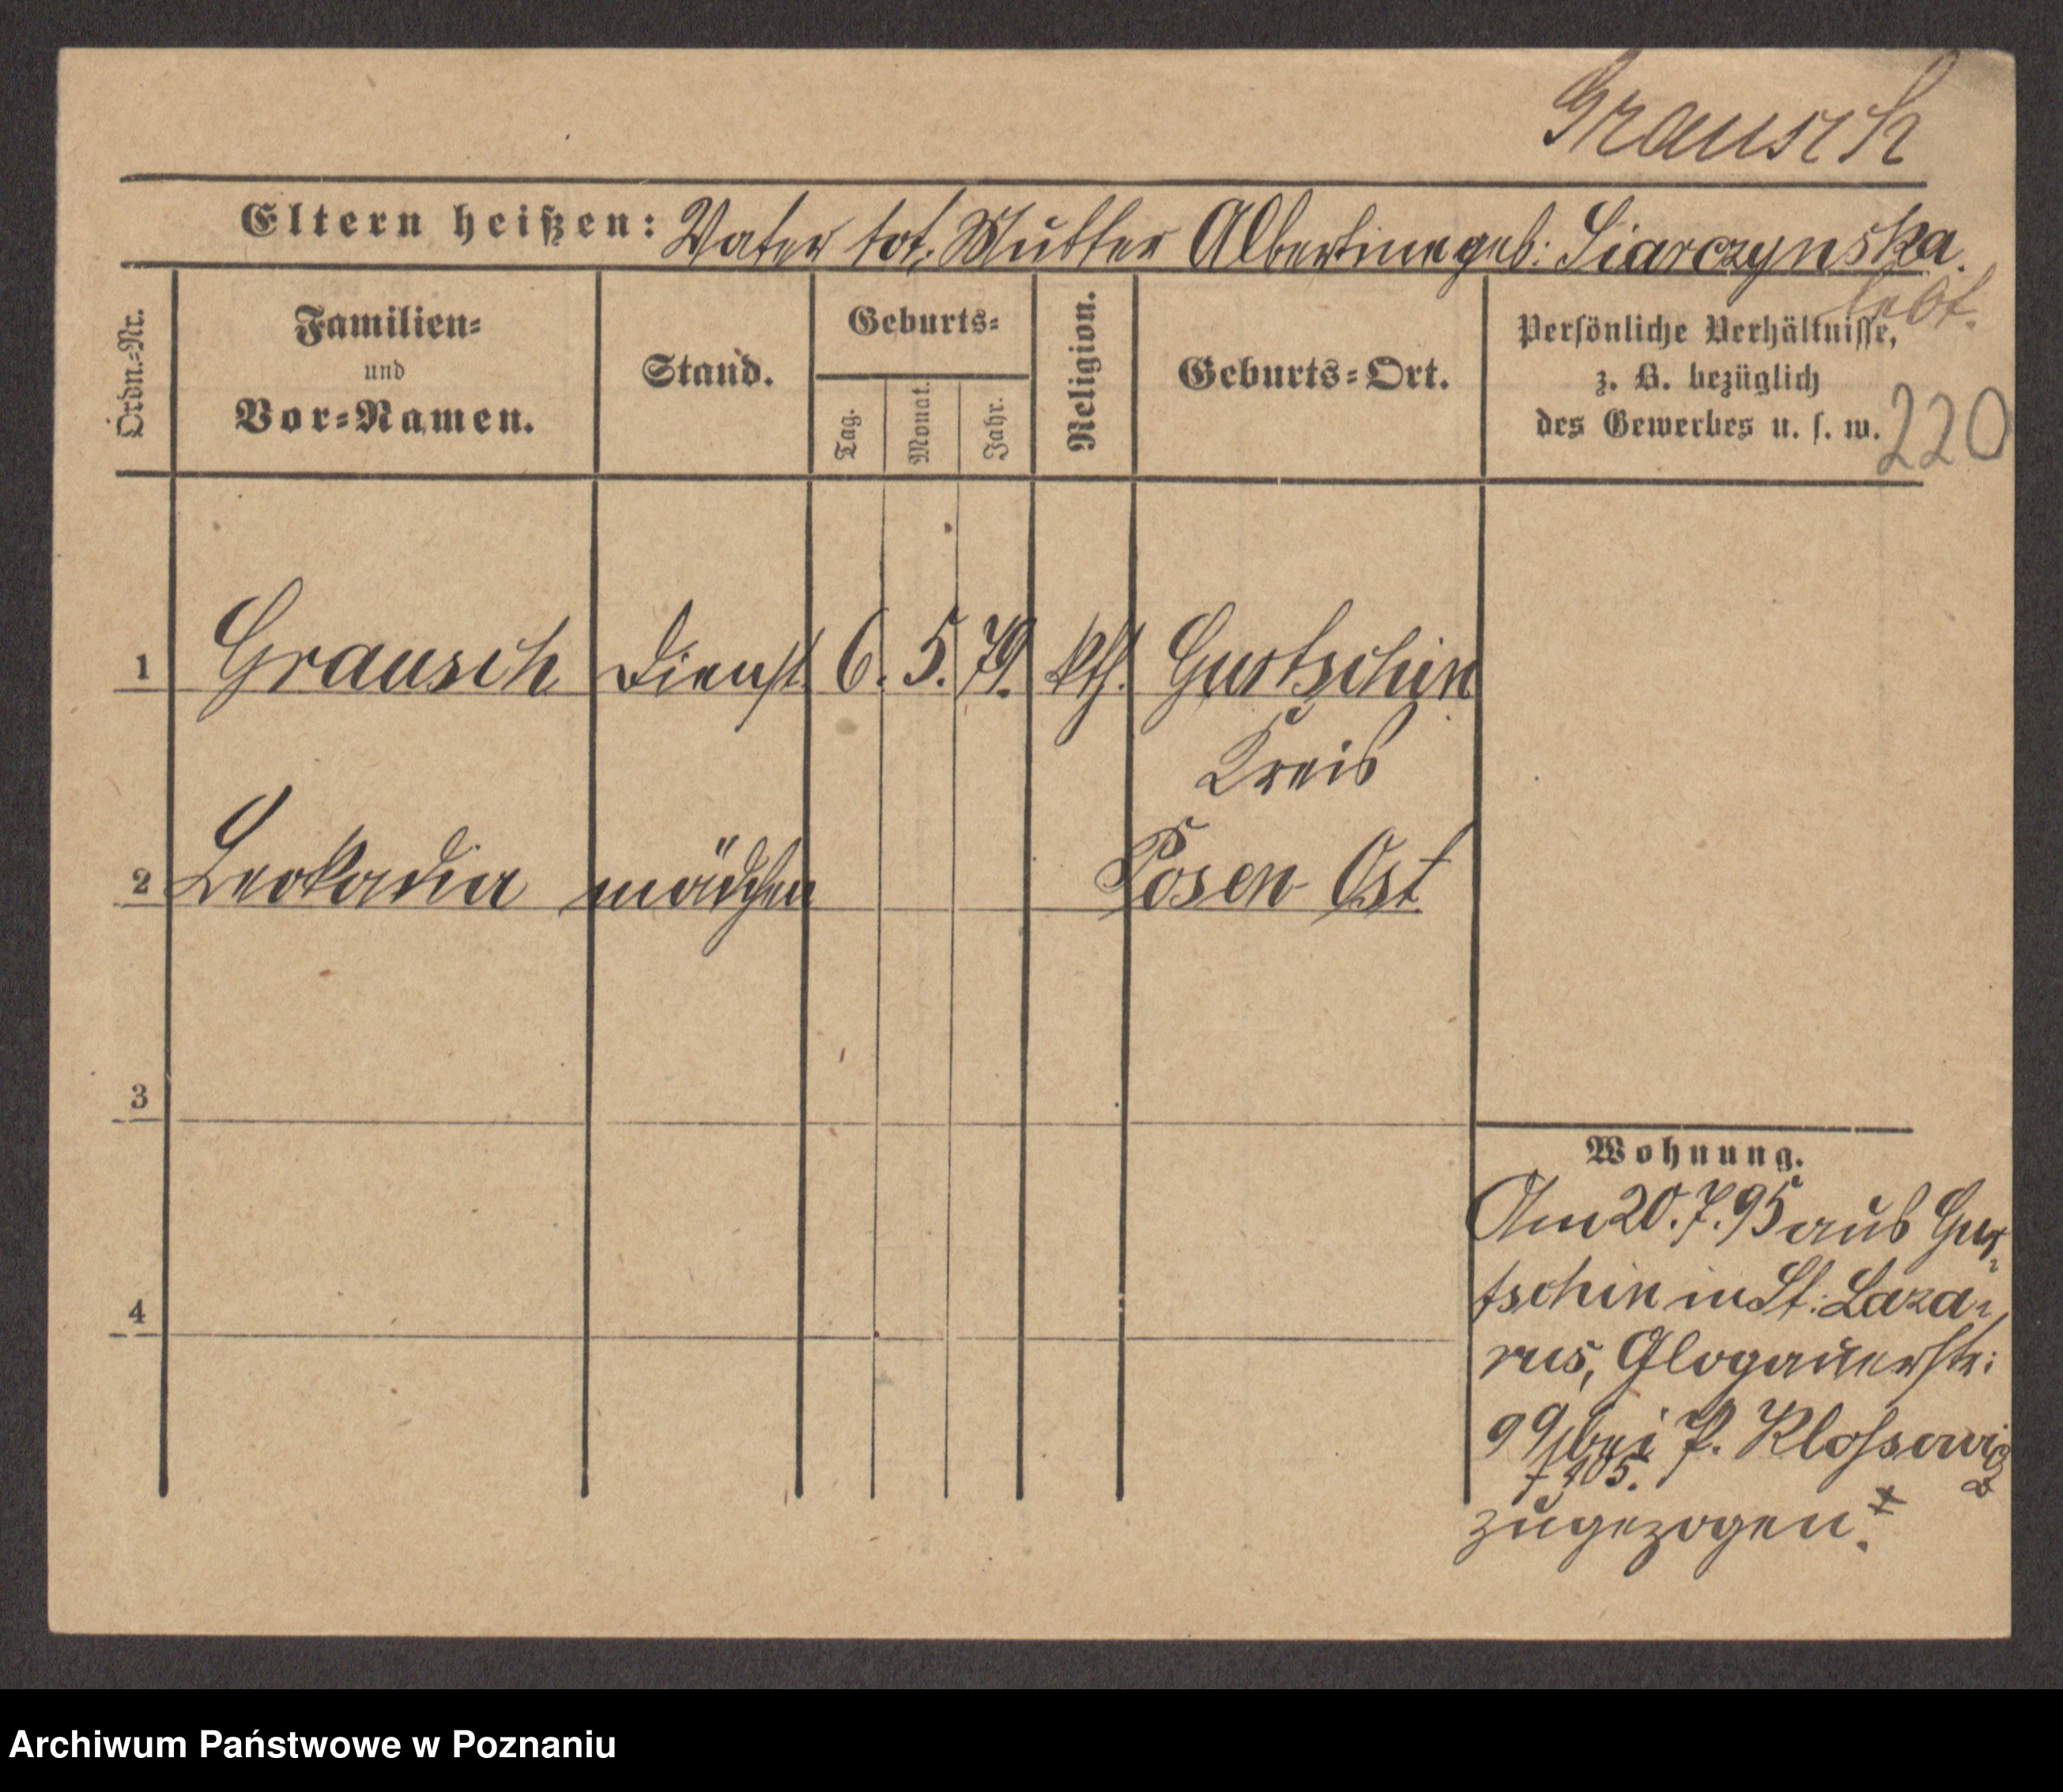 Grausch
Eltern heißen: Vater tot. Mutter Albertine geb: Siarczynska.
lebt.
Ordn.=Nr.
Familien=
und
Vor=Namen.
Stand.
Geburts=
Tag.
Monat.
Jahr.
Religion.
Geburts=Ort.
Persönliche Verhältnisse,
z. B. bezüglich
des Gewerbes u. s. w.
220
1 Grausch Dienst 6. 5. 79. kth. Gurtschin
Kreis
2 Leokadia mädchen Posen-Ost
3
4
Wohnung.
Am 20.7.95 aus Gur-
tschin in St: Laza-
rus, Glogauerstr:
99 bei P.
zugezogen.
Archiwum Państwowe w Poznaniu